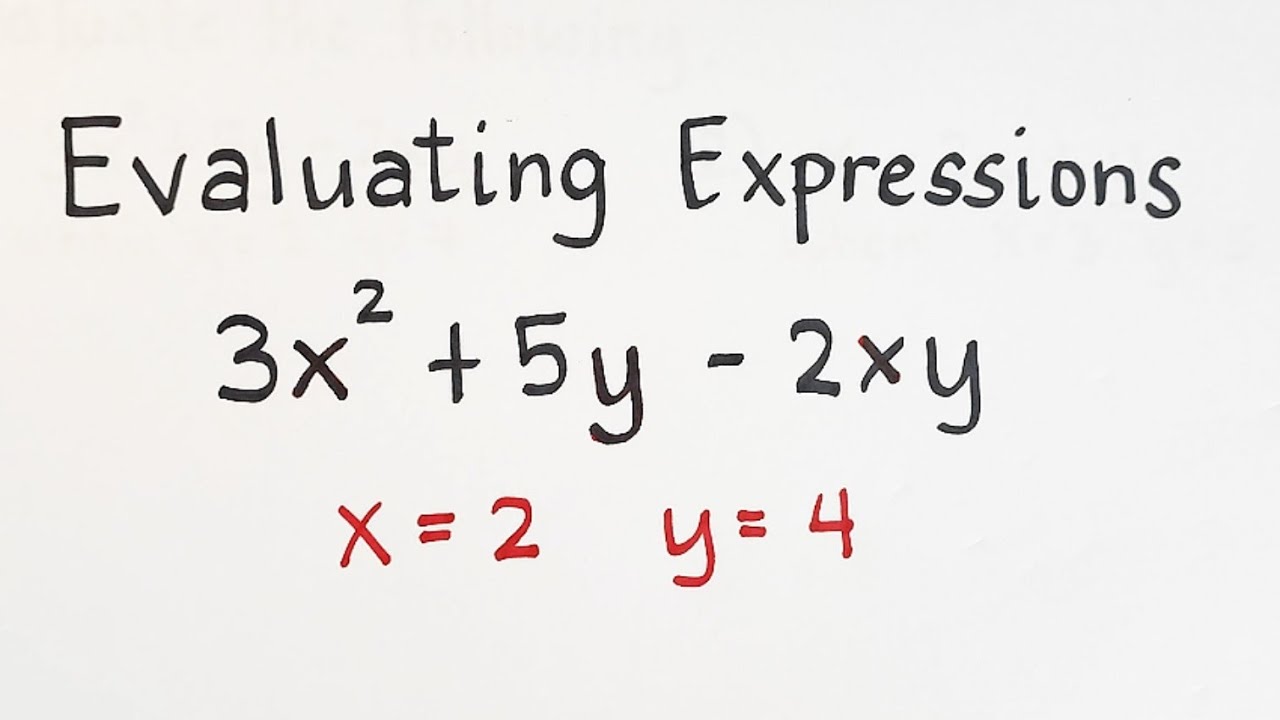 Evaluating Expressions
3x² + 5y - 2xy
x = 2 y = 4